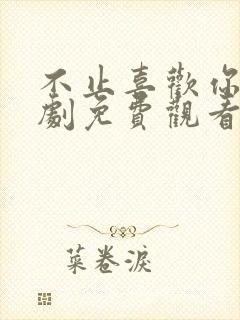 不止喜歡你
劇免費觀看
菜卷淚